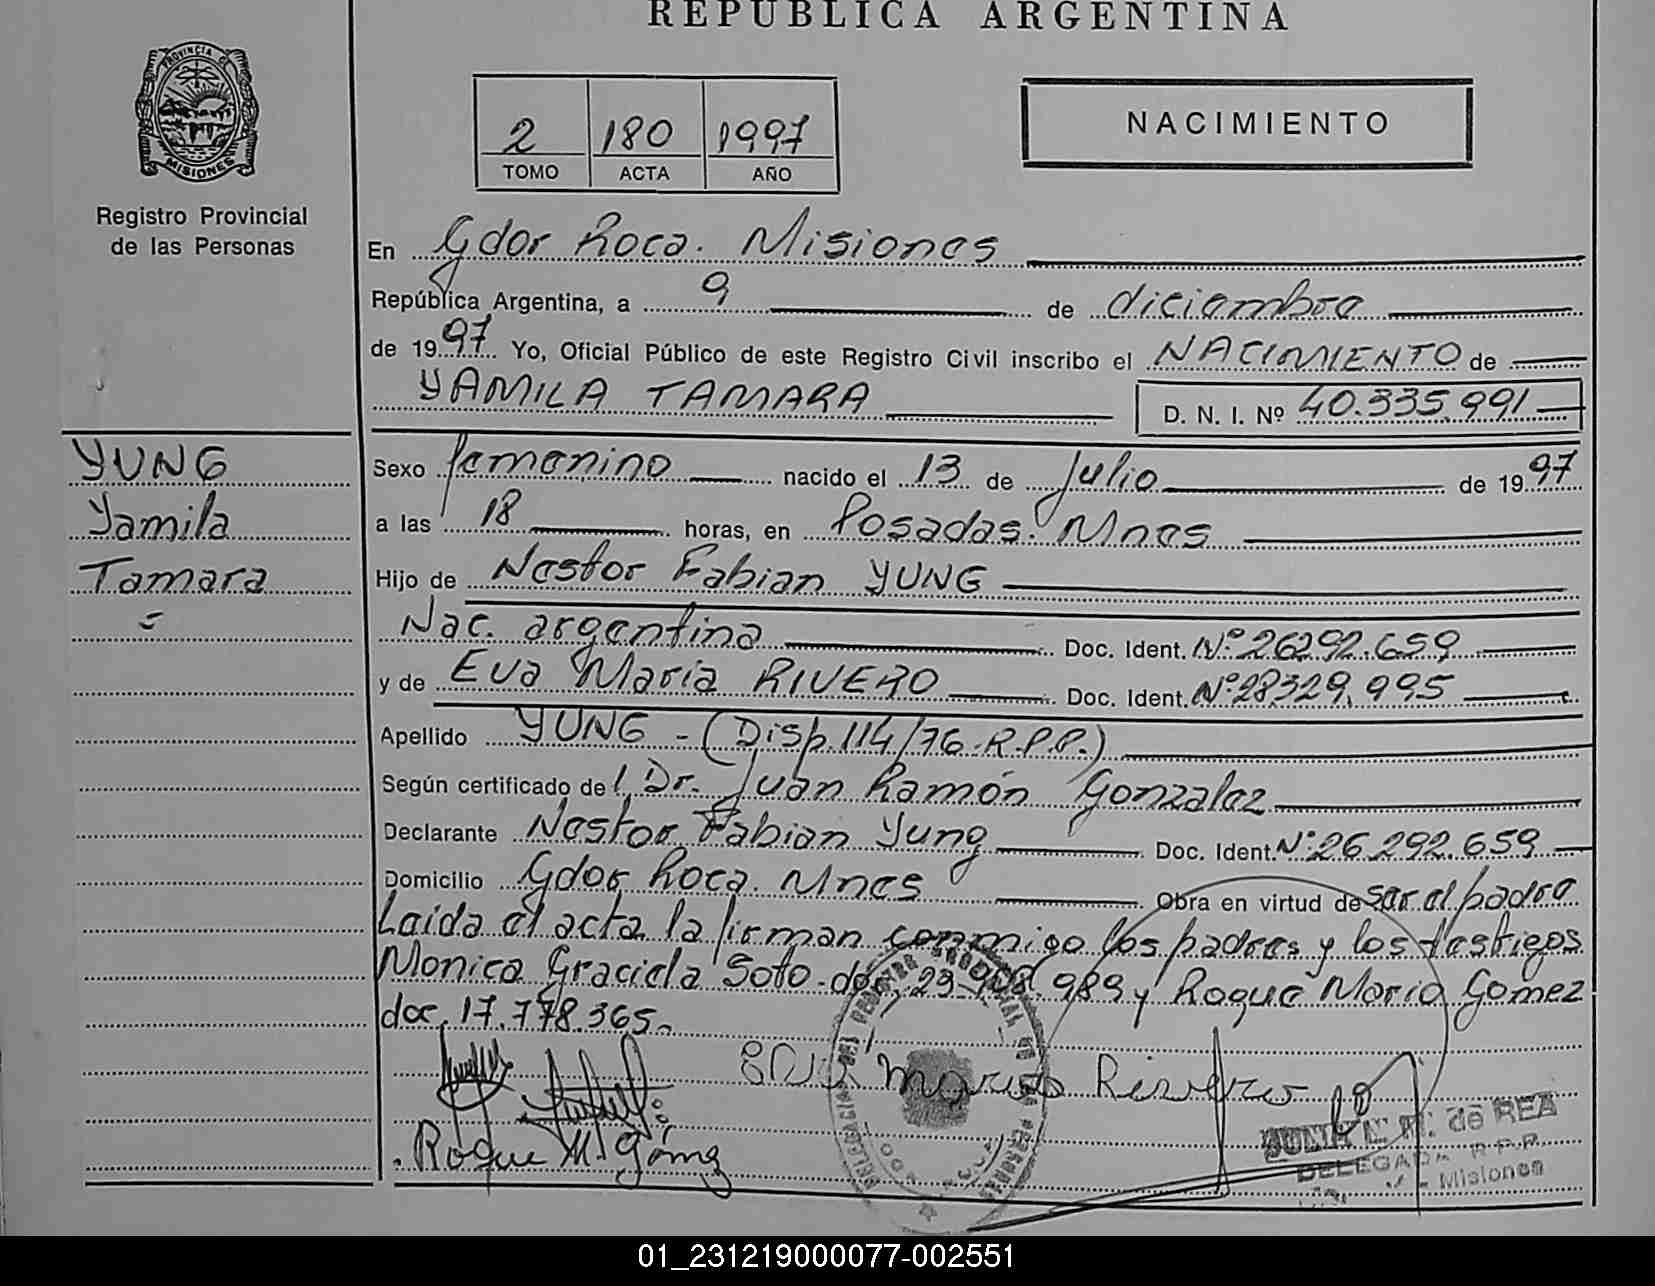 REPUBLICA ARGENTINA
PROVINCIA DE
MISIONES
Registro Provincial
de las Personas
2 180 1997
TOMO ACTA AÑO
NACIMIENTO
En Gdor Roca. Misiones
República Argentina, a 9 de diciembre
de 1997 Yo, Oficial Público de este Registro Civil inscribo el NACIMIENTO de
YAMILA TAMARA D. N. I. Nº 40.335.991
YUNG
Yamila
Tamara
Sexo femenino nacido el 13 de Julio de 1997
a las 18 horas, en Posadas. Mnes
Hijo de Nestor Fabian YUNG
Nac. argentina Doc. Ident. Nº 26292.659
y de Eva Maria RIVERO Doc. Ident. Nº 28329.995
Apellido YUNG - (Disp. 114/76-R.P.P.)
Según certificado del Dr. Juan Ramón Gonzalez
Declarante Nestor Fabian Yung Doc. Ident. Nº 26.292.659
Domicilio Gdor Roca. Mnes Obra en virtud de ser el padre
Leida el acta la firman conmigo los padres y los testigos
Monica Graciela Soto-doc. 989 y Roque Mario Gomez
doc. 17.778.365.
Rivero
Roque M. Gómez
de REA
DELEGADA R.P.P.
Misiones
01_231219000077-002551